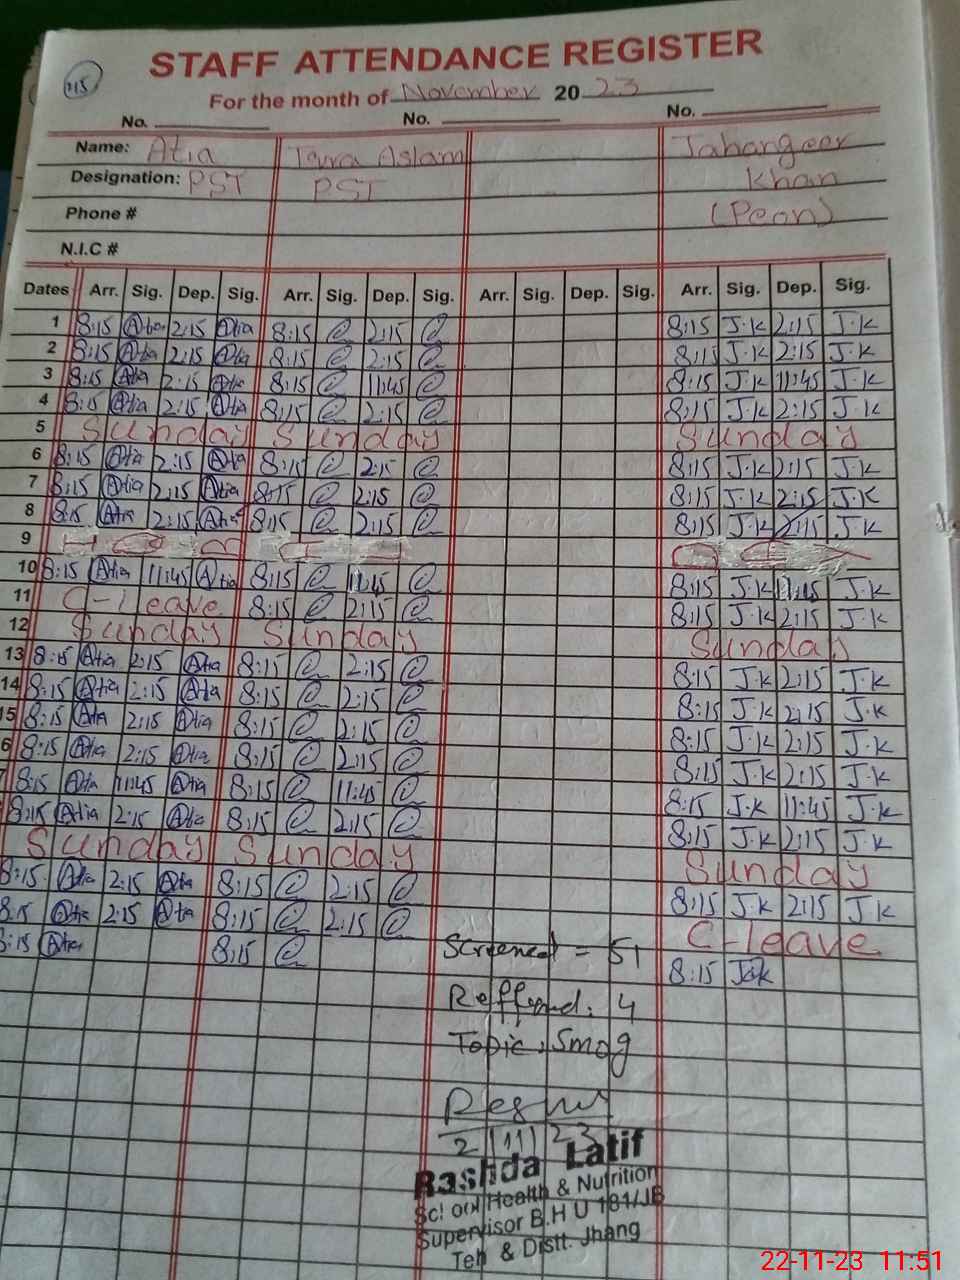 115
STAFF ATTENDANCE REGISTER
For the month of November 20 23
No. No. No.
Name: Atia Aslam Jahangeer
Designation: PST PST Khan
Phone # (Peon)
N.I.C #
Dates Arr. Sig. Dep. Sig. Arr. Sig. Dep. Sig. Arr. Sig. Dep. Sig. Arr. Sig. Dep. Sig.
1 8:15 Atia 2:15 Atia 8:15 2:15 8:15 J.K 2:15 J.K
2 8:15 Atia 2:15 Atia 8:15 2:15 8:15 J.K 2:15 J.K
3 8:15 Atia 2:15 Atia 8:15 11:45 8:15 J.K 11:45 J.K
4 8:15 Atia 2:15 Atia 8:15 2:15 8:15 J.K 2:15 J.K
5 Sunday Sunday Sunday
6 8:15 Atia 2:15 Atia 8:15 2:15 8:15 J.K 2:15 J.K
7 8:15 Atia 2:15 Atia 8:15 2:15 8:15 J.K 2:15 J.K
8 8:15 Atia 2:15 Atia 8:15 2:15 8:15 J.K 2:15 J.K
9
10 8:15 Atia 11:45 Atia 8:15 11:45 8:15 J.K 11:45 J.K
11 C-leave 8:15 2:15 8:15 J.K 2:15 J.K
12 Sunday Sunday Sunday
13 8:15 Atia 2:15 Atia 8:15 2:15 8:15 J.K 2:15 J.K
14 8:15 Atia 2:15 Atia 8:15 2:15 8:15 J.K 2:15 J.K
15 8:15 Atia 2:15 Atia 8:15 2:15 8:15 J.K 2:15 J.K
6 8:15 Atia 2:15 Atia 8:15 2:15 8:15 J.K 2:15 J.K
8:15 Atia 11:45 Atia 8:15 11:45 8:15 J.K 11:45 J.K
8:15 Atia 2:15 Atia 8:15 2:15 8:15 J.K 2:15 J.K
Sunday Sunday Sunday
8:15 Atia 2:15 Atia 8:15 2:15 8:15 J.K 2:15 J.K
8:15 Atia 2:15 Atia 8:15 2:15 C-leave
8:15 Atia 8:15 8:15 J.K
Screened = 51
Refferred: 4
Topic: Smog
Rashda Latif
School Health & Nutrition
Supervisor B.H U 181/JB
Teh & Distt. Jhang
22-11-23 11:51